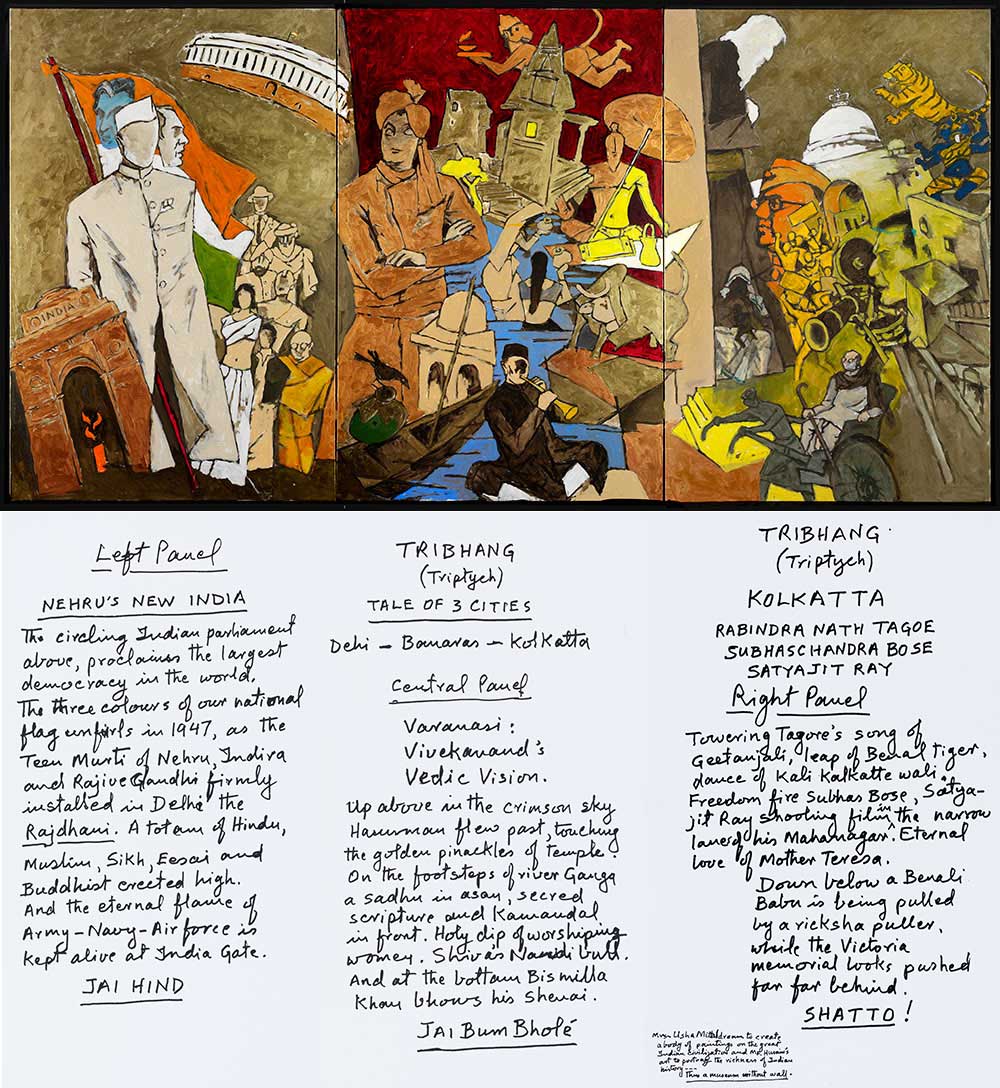 INDIA
Left Panel
NEHRU'S NEW INDIA
The circling Indian parliament
above, proclaims the largest
democracy in the world.
The three colours of our national
flag unfurls in 1947, as the
Teen Murti of Nehru, Indira
and Rajive Gandhi firmly
installed in Delhi the
Rajdhani. A totam of Hindu,
Muslim, Sikh, Eesai and
Buddhist erected high.
And the eternal flame of
Army-Navy-Air force is
kept alive at India Gate.
JAI HIND
TRIBHANG
(Triptych)
TALE OF 3 CITIES
Dehi - Banaras - Kolkatta
Central Panel
Varanasi:
Vivekanand's
Vedic Vision.
Up above in the crimson sky
Hanuman flew past, touching
the golden pinackles of temple.
On the footsteps of river Ganga
a sadhu in asan, secred
scripture and Kamandal
in front. Holy dip of worshiping
women. Shiva's Nandi bull.
And at the bottam Bismilla
Khan blows his Shenai.
JAI Bum Bholé
TRIBHANG
(Triptych)
KOLKATTA
RABINDRA NATH TAGOE
SUBHASCHANDRA BOSE
SATYAJIT RAY
Right Panel
Towering Tagore's song of
Geetanjali, leap of Benal tiger,
dance of Kali Kalkatte wali.
Freedom fire Subhas Bose, Satya-
jit Ray shooting film in the narrow
lanes of his Mahanagar. Eternal
love of Mother Teresa.
Down below a Benali
Babu is being pulled
by a ricksha puller,
while the Victoria
memorial looks pushed
far far behind.
SHATTO!
Mrs. Usha Mittal dream to create
a body of paintings on the great
Indian Civilization and M.F. Husain's
art to portray the richness of Indian
history---
Thus a museum without wall.